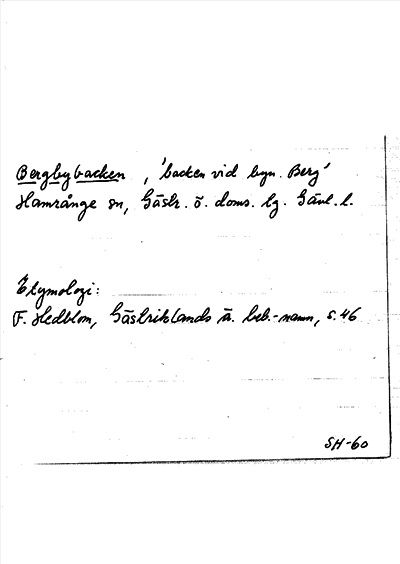 Bergbybacken, 'backen vid byn. Berg'
Hamrånge sn, Gästr. ö. doms. lg. Gävl. l.
Etymologi:
F. Hedblom, Gästriklands ä. beb.-namn, s. 46
SH-60